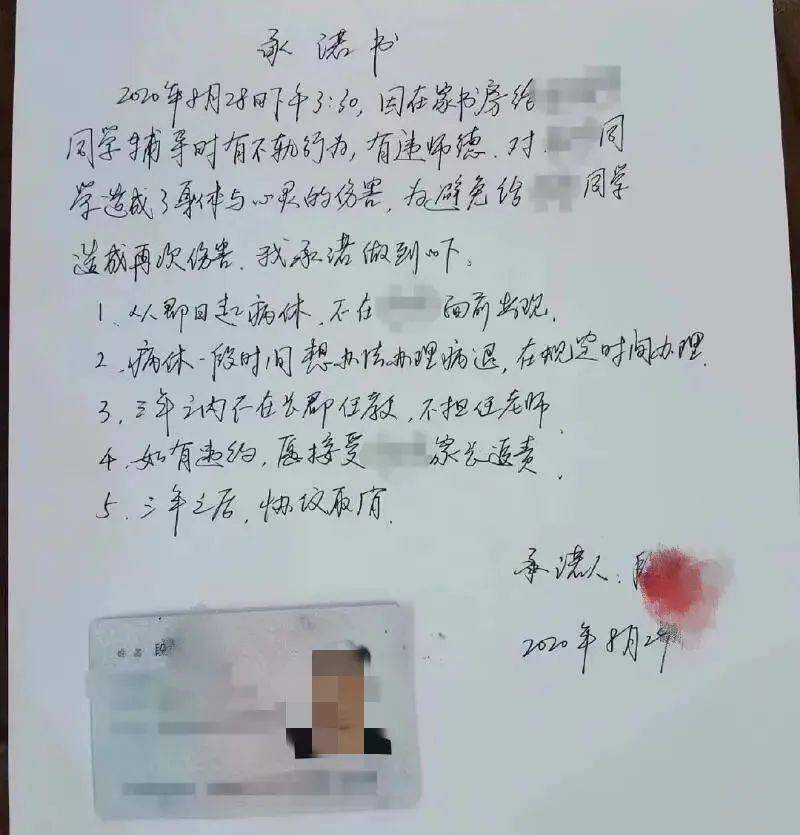 承诺书
2020年8月28日下午3:30,因在家书房给
同学辅导时有不轨行为,有违师德.对 同
学造成了身体与心灵的伤害,为避免给 同学
造成再次伤害.我承诺做到以下:
1、从即日起病休,不在 面前出现.
2、病休一段时间想办法办理病退,在规定时间办理.
3、三年之内不在长郡任教,不担任老师.
4、如有违约,愿接受 家长追责.
5、三年之后,协议取消.
承诺人:段
2020年8月2
姓名 段